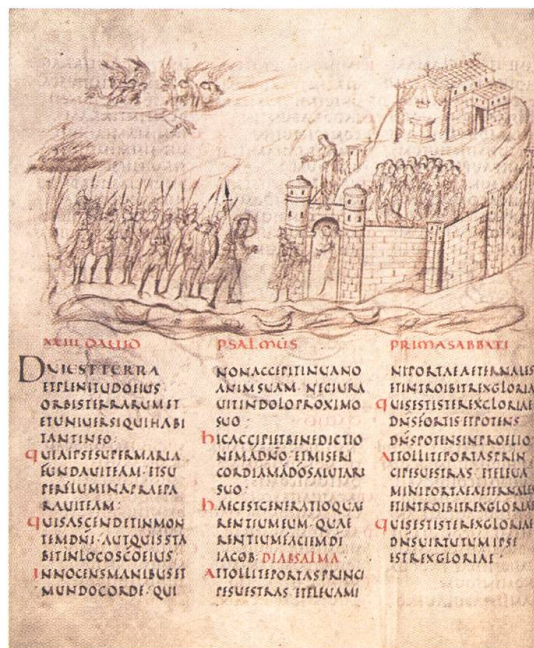 XXIII DAUID
DNIESTTERRA
ETPLENITUDOEIUS
ORBISTERRARUMET
ETUNIUERSIQUIHABI
TANTINEO·
QUIAIPSESUPERMARIA
FUNDAUITEAM· ETSU
PERFLUMINAPRAEPA
RAUITEAM·
QUISASCENDETINMON
TEMDNI· AUTQUISSTA
BITINLOCOSCOEIUS
INNOCENSMANIBUSET
MUNDOCORDE· QUI
PSALMUS
NONACCEPITINUANO
ANIMSUAM· NECIURA
UITINDOLOPROXIMO
SUO·
HICACCIPIETBENEDICTIO
NEMADNO· ETMISERI
CORDIAMADOSALUTARI
SUO·
HAECESTGENERATIOQUAE
RENTIUMEUM· QUAE
RENTIUMFACIEMDI
IACOB· DIABSALMA
ATTOLLITEPORTASPRINCI
PESUESTRAS· ETELEUAMI
PRIMASABBATI
NIPORTAEAETERNALES
ETINTROIBITREXGLORIAE
QUISESTISTEREXGLORIAE
DNSFORTISETPOTENS
DNSPOTENSINPROELIO·
ATTOLLITEPORTASPRIN
CIPESUESTRAS· ETELEUA
MINIPORTAEAETERNALES
ETINTROIBITREXGLORIAE
QUISESTISTEREXGLORIAE
DNSUIRTUTUMIPSE
ESTREXGLORIAE·